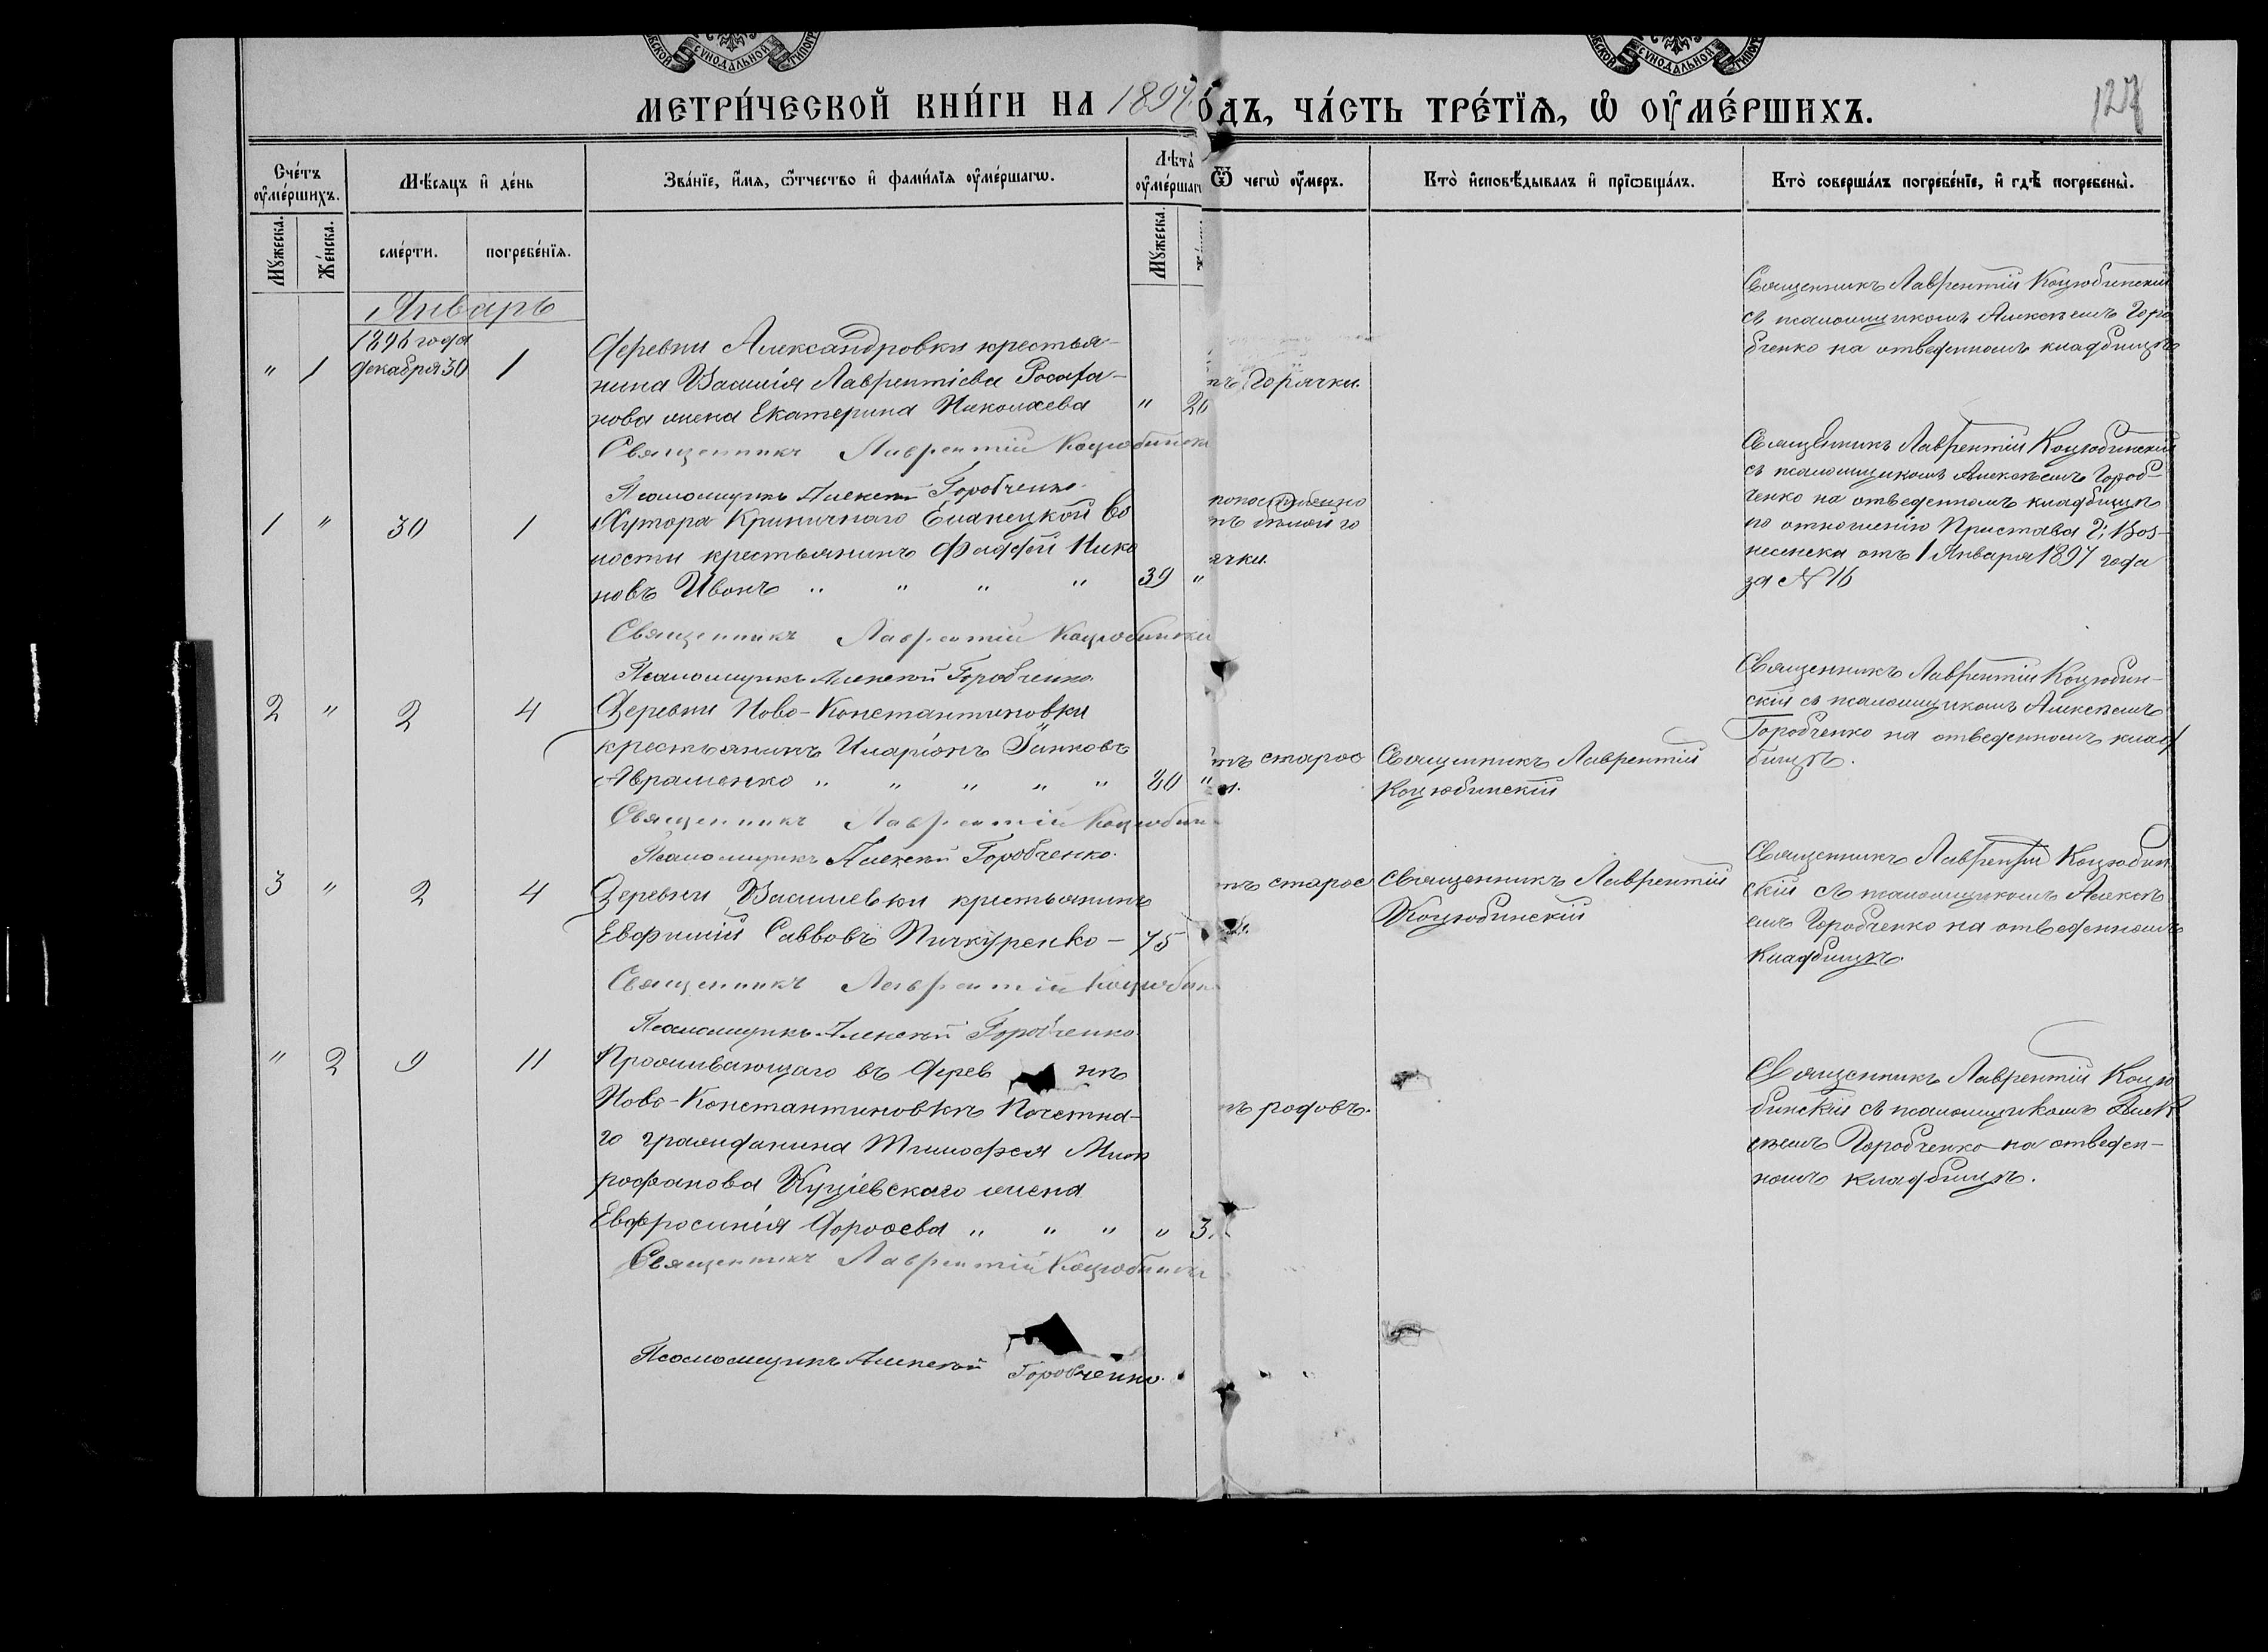 СѴНОДАЛЬНОЙ
СѴНОДАЛЬНОЙ
МЕТРИ́ЧЕСКОЙ КНИ́ГИ НА 1897 О́ДЪ, ЧА́СТЬ ТРЕ́ТЇѦ, Ѡ ОУ҆МЕ́РШИХЪ.
127
Сче́тъ оу҆ме́ршихъ.
Мѣ́сяцъ и҆ де́нь
Зва́нїе, и҆́мя, ѻ҆́тчество и҆ фами́лїя оу҆ме́ршагѡ.
Лѣта̀ оу҆ме́ршагѡ
Ѿ чегѡ̀ оу҆́меръ.
Кто̀ и҆сповѣ́дывалъ и҆ прїѡбща́лъ.
Кто̀ соверша́лъ погребе́нїе, и҆ гдѣ̀ погребены̀.
Му́жеска.
Же́нска.
сме́рти.
погребе́нїя.
Му́жеска.
Январь
1896 года
" 1 декабря 30 1
Деревни Александровки крестья-
нина Василія Лаврентіева Росафа-
нова жена Екатерина Николаева " 20
Священникъ Лаврентій Коцюбински
Псаломщикъ Алексѣй Горобченко.
нъ Горячки.
Священникъ Лаврентій Коцюбинскій
съ псаломщикомъ Алексѣемъ Горо
бченко на отведенномъ кладбищѣ
1 " 30 1
Хутора Криничнаго Еланецкой во
лости крестьянинъ Фаддей Нико
новъ Ивонъ " " " " 39 "
Священникъ Лаврентій Коцюбински
Псаломщикъ Алексѣй Горобченко.
ячки.
Священникъ Лаврентій Коцюбинскій
съ псаломщикомъ Алексѣемъ Гороб-
ченко на отведенномъ кладбищѣ
по отношенію Пристава г. Воз-
несенска отъ 1 Января 1897 года
за № 16
2 " 2 4
Деревни Ново-Константиновки
крестьянинъ Иларіонъ
Авраменко " " " " " 80 "
Священникъ Лаврентій Коцюбин
Псаломщикъ Алексѣй Горобченко.
тъ старос
и.
Священникъ Лаврентій
Коцюбинскій
Священникъ Лаврентій Коцюбин-
скій съ псаломщикомъ Алексѣемъ
Горобченко на отведенномъ клад
бищѣ.
3 " 2 4
Деревни Василиевки крестьянинъ
Евфимій Саввовъ Пичкуренко - 75
Священникъ Лаврентій Коцюбин
Псаломщикъ Алексѣй Горобченко.
тъ старос
Священникъ Лаврентій
Коцюбинскій
Священникъ Лаврентій Коцюбин
скій съ псаломщикомъ Алексѣ
емъ Горобченко на отведенномъ
кладбищѣ.
" 2 9 11
Проживающаго въ дерев нѣ
Ново-Константиновкѣ Почетна-
го гражданина Тимофея Мит
рофанова Куціевскаго жена
Евфросинія Дорофеева " " " " 3
Священникъ Лаврентій Коцюбински
Псаломщикъ Алексѣй Горобченко.
ъ родовъ.
Священникъ Лаврентій Коцю
бинскій съ псаломщикомъ Алек
сѣемъ Горобченко на отведен-
номъ кладбищѣ.